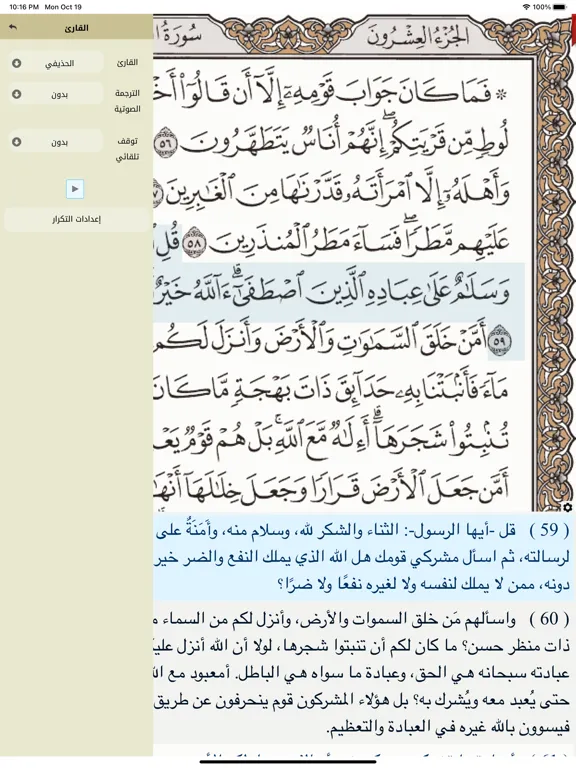 10:16 PM Mon Oct 19
100%
القارئ
القارئ
الحذيفي
الترجمة الصوتية
بدون
توقف تلقائي
بدون
إعدادات التكرار
الجزء العشرون
سورة
۞ فَمَا كَانَ جَوَابَ قَوْمِهِۦٓ إِلَّآ أَن قَالُوٓا۟
لُوطٍ مِّن قَرْيَتِكُمْ ۖ إِنَّهُمْ أُنَاسٌ يَتَطَهَّرُونَ ٥٦
وَأَهْلَهُۥٓ إِلَّا ٱمْرَأَتَهُۥ قَدَّرْنَٰهَا مِنَ ٱلْغَٰبِرِينَ
عَلَيْهِم مَّطَرًا ۖ فَسَآءَ مَطَرُ ٱلْمُنذَرِينَ ٥٨ قُلِ
وَسَلَٰمٌ عَلَىٰ عِبَادِهِ ٱلَّذِينَ ٱصْطَفَىٰٓ ۗ ءَآللَّهُ خَيْرٌ
٥٩ أَمَّنْ خَلَقَ ٱلسَّمَٰوَٰتِ وَٱلْأَرْضَ وَأَنزَلَ لَكُم
مَآءً فَأَنۢبَتْنَا بِهِۦ حَدَآئِقَ ذَاتَ بَهْجَةٍ مَّا كَانَ
تُنۢبِتُوا۟ شَجَرَهَآ ۗ أَءِلَٰهٌ مَّعَ ٱللَّهِ ۚ بَلْ هُمْ قَوْمٌ
أَمَّن جَعَلَ ٱلْأَرْضَ قَرَارًا وَجَعَلَ خِلَٰلَهَآ
( 59 ) قل -أيها الرسول-: الثناء والشكر لله، وسلام منه، وأَمَنَةٌ على
لرسالته، ثم اسأل مشركي قومك هل الله الذي يملك النفع والضر خير
دونه، ممن لا يملك لنفسه ولا لغيره نفعًا ولا ضرًا؟
( 60 ) واسألهم مَن خلق السموات والأرض، وأنزل لكم من السماء
ذات منظر حسن؟ ما كان لكم أن تنبتوا شجرها، لولا أن الله أنزل
عبادته سبحانه هي الحق، وعبادة ما سواه هي الباطل. أمعبود مع
حتى يُعبد معه ويُشرك به؟ بل هؤلاء المشركون قوم ينحرفون عن طريق
فيسوون بالله غيره في العبادة والتعظيم.